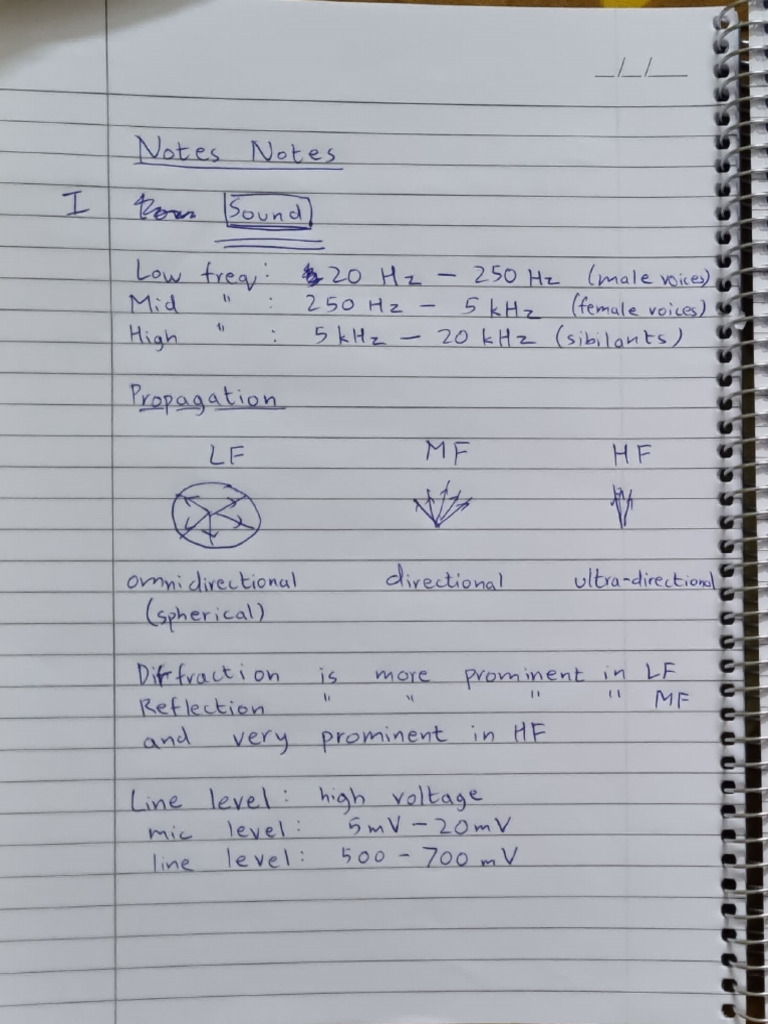 _/_/__
Notes Notes
I Sound
Low freq: 20 Hz – 250 Hz (male voices)
Mid " : 250 Hz – 5 kHz (female voices)
High " : 5 kHz – 20 kHz (sibilants)
Propagation
LF MF HF
omnidirectional directional ultra-directional
(spherical)
Diffraction is more prominent in LF
Reflection " " " " MF
and very prominent in HF
Line level: high voltage
mic level: 5mV – 20mV
line level: 500 – 700 mV